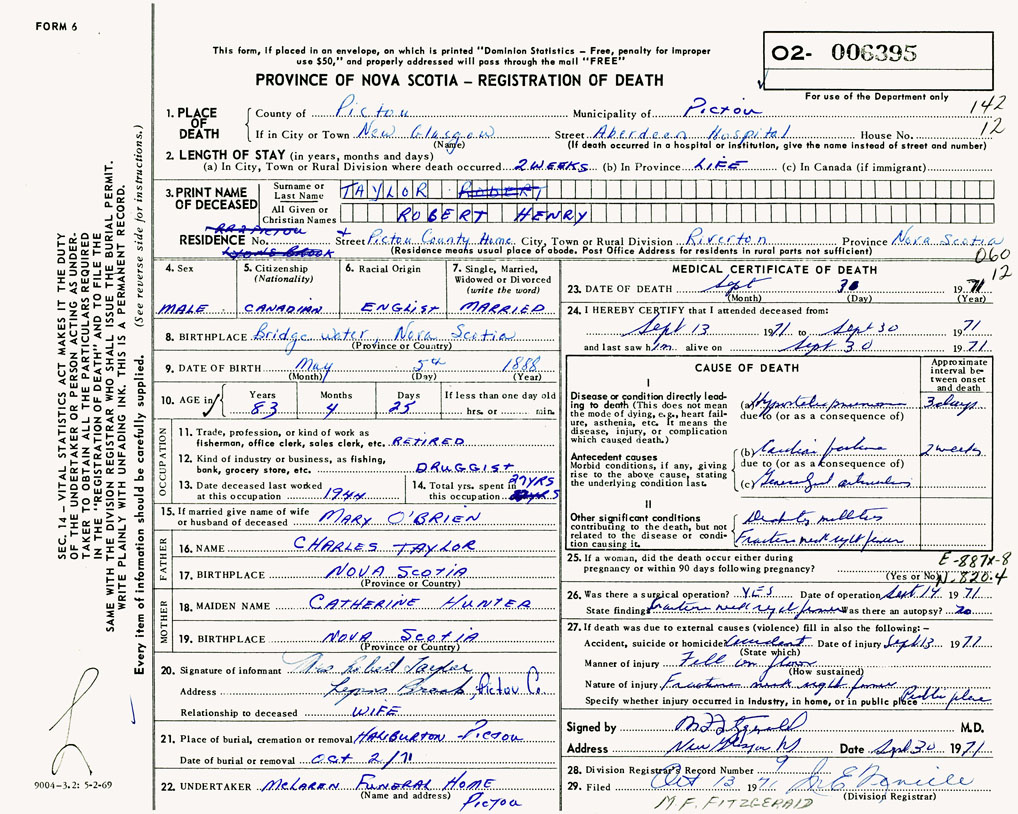 FORM 6
This form, if placed in an envelope, on which is printed "Dominion Statistics – Free, penalty for improper
use $50," and properly addressed will pass through the mail "FREE"
PROVINCE OF NOVA SCOTIA – REGISTRATION OF DEATH
02- 006395
For use of the Department only
142
12
SEC. 14 – VITAL STATISTICS ACT MAKES IT THE DUTY
OF THE UNDERTAKER OR PERSON ACTING AS UNDER-
TAKER TO OBTAIN ALL THE PARTICULARS REQUIRED
IN THE "REGISTRATION OF DEATH" AND TO FILE THE
SAME WITH THE DIVISION REGISTRAR WHO SHALL ISSUE THE BURIAL PERMIT.
WRITE PLAINLY WITH UNFADING INK. THIS IS A PERMANENT RECORD.
Every item of information should be carefully supplied. (See reverse side for instructions.)
1. PLACE OF DEATH
County of Pictou Municipality of Pictou
If in City or Town New Glasgow Street Aberdeen Hospital House No.
(Name) (If death occurred in a hospital or institution, give the name instead of street and number)
2. LENGTH OF STAY (in years, months and days)
(a) In City, Town or Rural Division where death occurred 2 WEEKS (b) In Province LIFE (c) In Canada (if immigrant)
3. PRINT NAME OF DECEASED
Surname or Last Name TAYLOR ROBERT
All Given or Christian Names ROBERT HENRY
RR PICTOU
LYONS BROOK
RESIDENCE No. Street Pictou County Home City, Town or Rural Division Riverton Province Nova Scotia
(Residence means usual place of abode. Post Office Address for residents in rural parts not sufficient)
060
12
4. Sex MALE
5. Citizenship (Nationality) CANADIAN
6. Racial Origin ENGLISH
7. Single, Married, Widowed or Divorced (write the word) MARRIED
8. BIRTHPLACE Bridgewater, Nova Scotia
(Province or Country)
9. DATE OF BIRTH May 5th 1888
(Month) (Day) (Year)
10. AGE in Years 83 Months 4 Days 25 If less than one day old hrs. or min.
OCCUPATION
11. Trade, profession, or kind of work as fisherman, office clerk, sales clerk, etc. RETIRED
12. Kind of industry or business, as fishing, bank, grocery store, etc. DRUGGIST
13. Date deceased last worked at this occupation 1944
14. Total yrs. spent in this occupation 27 YRS
15. If married give name of wife or husband of deceased MARY O'BRIEN
FATHER
16. NAME CHARLES TAYLOR
17. BIRTHPLACE NOVA SCOTIA
(Province or Country)
MOTHER
18. MAIDEN NAME CATHERINE HUNTER
19. BIRTHPLACE NOVA SCOTIA
(Province or Country)
20. Signature of informant Mrs Robert Taylor
Address Lyons Brook, Pictou C.
Relationship to deceased WIFE
21. Place of burial, cremation or removal HALIBURTON - PICTOU
Date of burial or removal OCT 2/71
22. UNDERTAKER McLAREN FUNERAL HOME
(Name and address) PICTOU
MEDICAL CERTIFICATE OF DEATH
23. DATE OF DEATH Sept 30 1971
(Month) (Day) (Year)
24. I HEREBY CERTIFY that I attended deceased from:
Sept 13 1971 to Sept 30 1971
and last saw him alive on Sept 30 1971
CAUSE OF DEATH
Approximate interval between onset and death
I
Disease or condition directly leading to death (This does not mean the mode of dying, e.g., heart failure, asthenia, etc. It means the disease, injury, or complication which caused death.)
(a) Hypostatic pneumonia 3 days
due to (or as a consequence of)
Antecedent causes
Morbid conditions, if any, giving rise to the above cause, stating the underlying condition last.
(b) Cardiac failure 2 weeks
due to (or as a consequence of)
(c) Generalized
II
Other significant conditions contributing to the death, but not related to the disease or condition causing it.
Diabetes mellitus
Fracture neck right femur
25. If a woman, did the death occur either during
pregnancy or within 90 days following pregnancy?
(Yes or No)
E-887X-8
N.820.4
26. Was there a surgical operation? YES Date of operation Sept 14 1971
State findings Fracture neck right femur Was there an autopsy? no
27. If death was due to external causes (violence) fill in also the following: –
Accident, suicide or homicide accident Date of injury Sept 13 1971
(State which)
Manner of injury Fell on floor
(How sustained)
Nature of injury Fracture neck right femur
Specify whether injury occurred in industry, in home, or in public place Public place
Signed by M F Fitzgerald M.D.
Address New Glasgow NS Date Sept 30 1971
28. Division Registrar's Record Number 9
29. Filed Oct 13 1971
(Division Registrar)
M.F. FITZGERALD
9004-3.2: 5-2-69